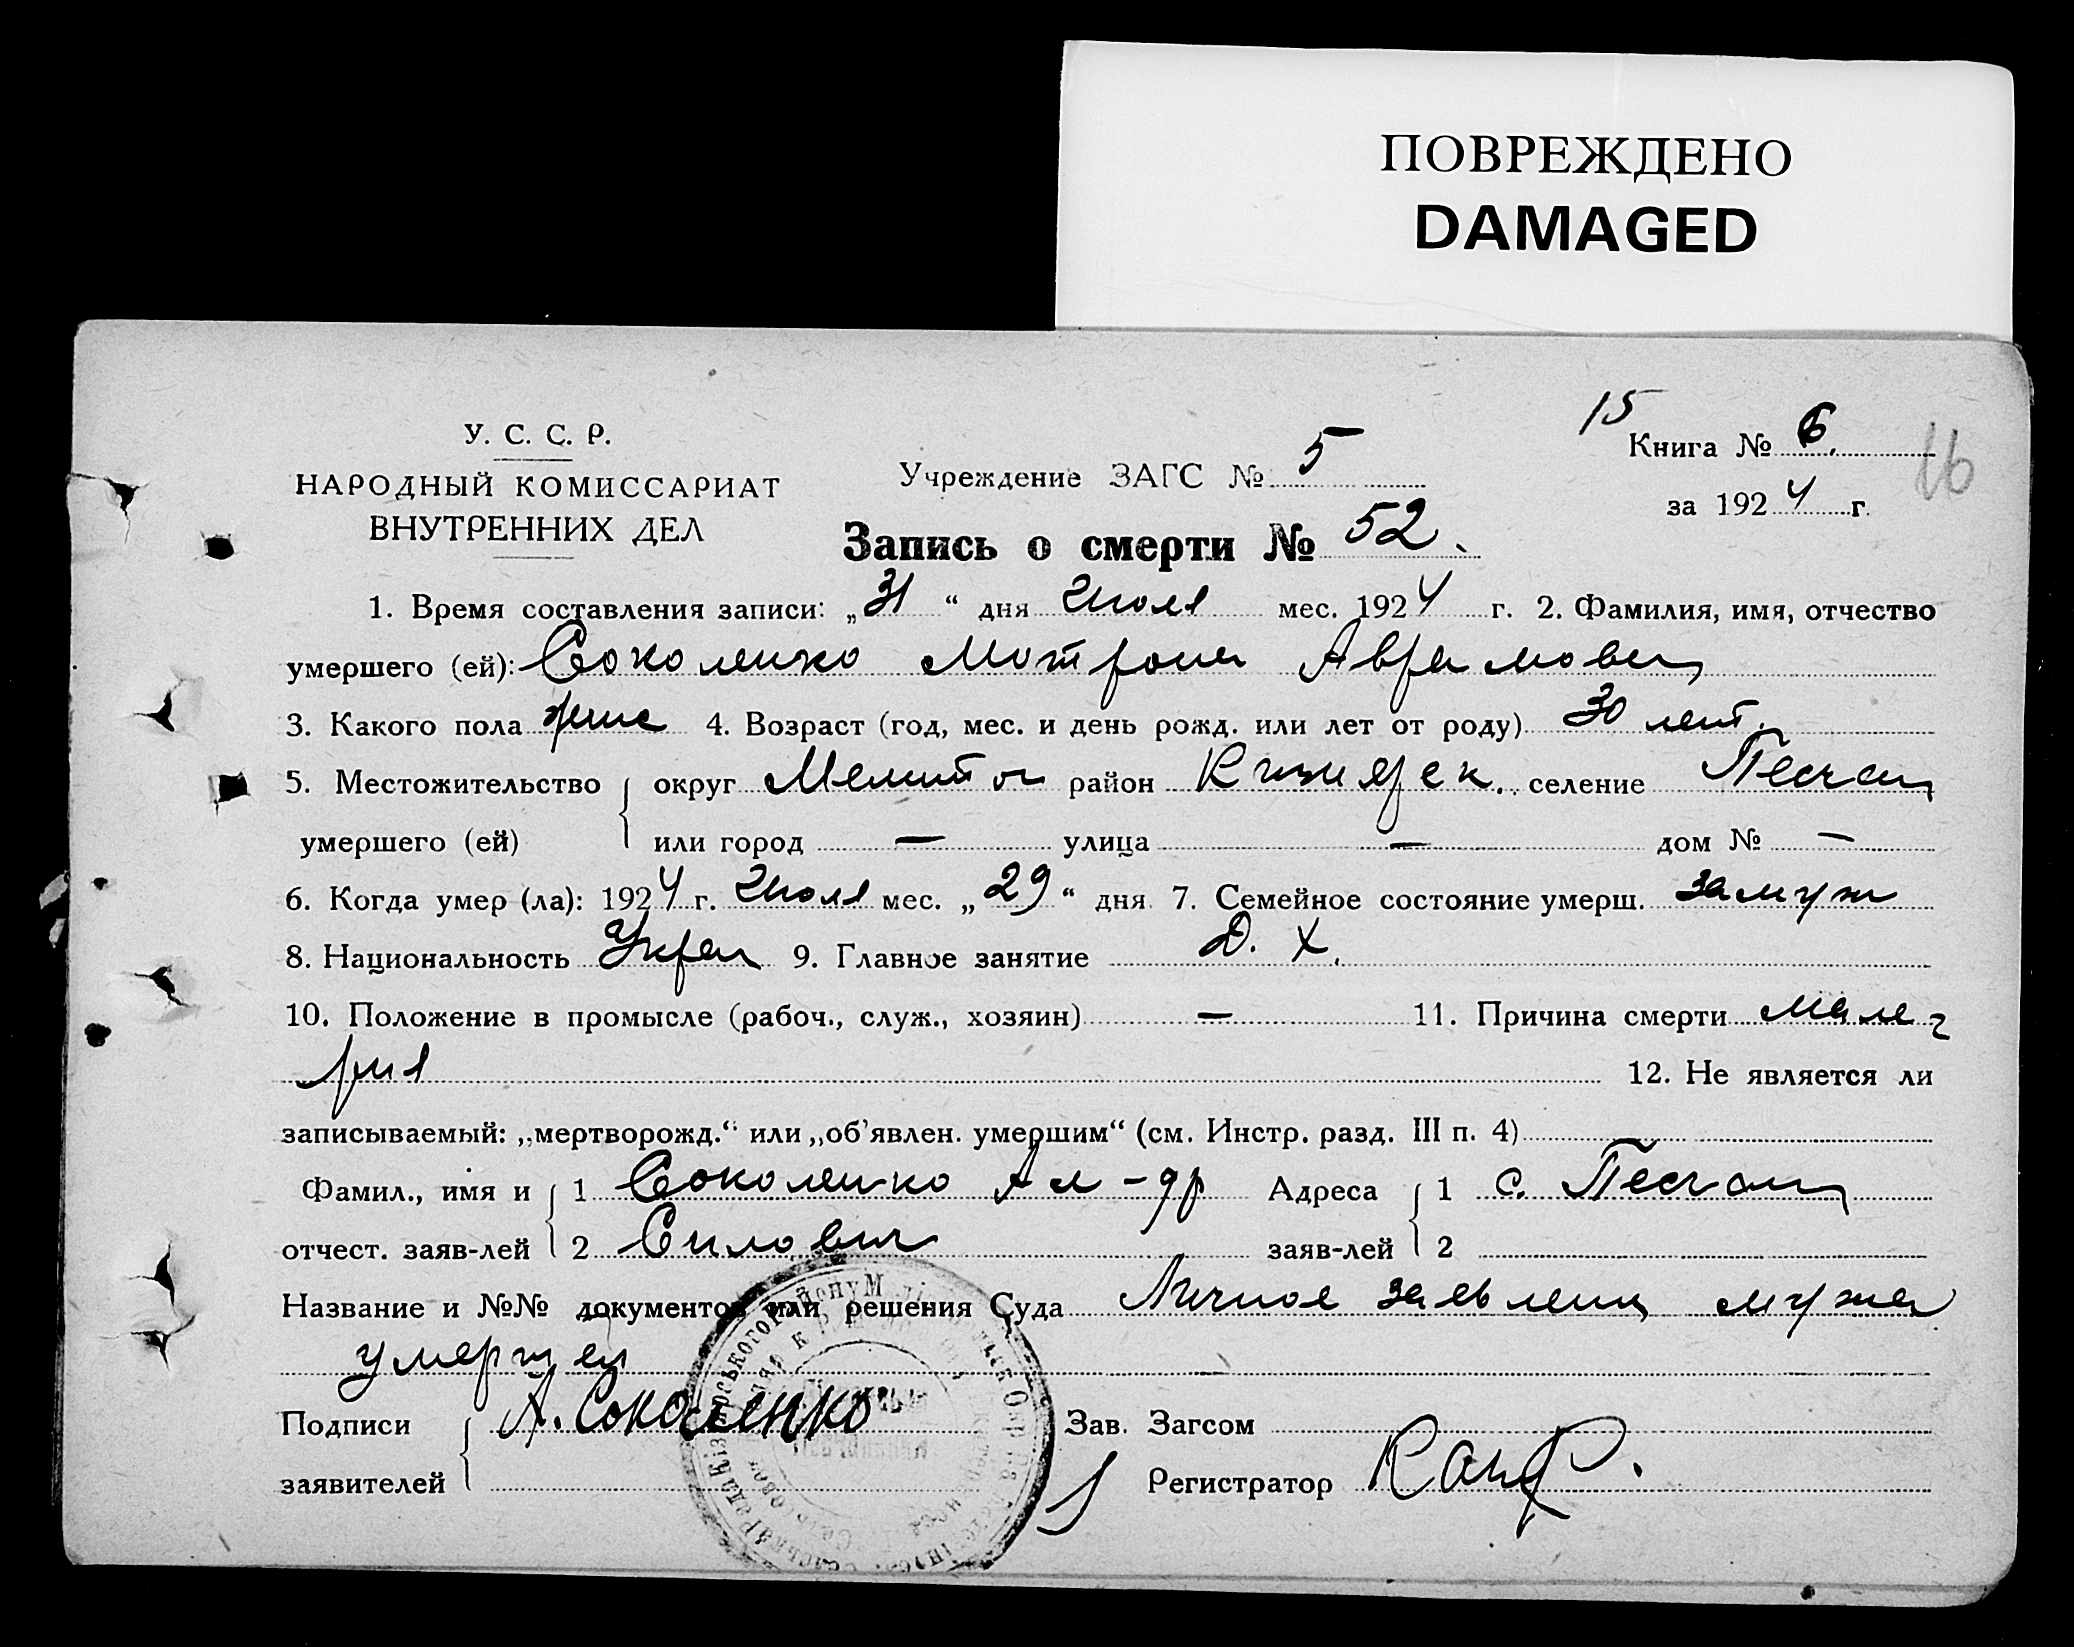 ПОВРЕЖДЕНО
DAMAGED
15
16
У. С. С. Р.
НАРОДНЫЙ КОМИССАРИАТ
ВНУТРЕННИХ ДЕЛ
Учреждение ЗАГС № 5
Книга № 6.
за 1924 г.
Запись о смерти № 52.
1. Время составления записи: „31“ дня Июля мес. 1924 г. 2. Фамилия, имя, отчество
умершего (ей): Соколенко Мотрона Аврамовн
3. Какого пола женс 4. Возраст (год, мес. и день рожд. или лет от роду) 30 лет.
5. Местожительство округ Мелитоп район Кизиярск. селение Песчан
умершего (ей) или город — улица — дом № —
6. Когда умер (ла): 1924 г. Июля мес. „29“ дня 7. Семейное состояние умерш. замуж
8. Национальность Укра 9. Главное занятие Д. Х.
10. Положение в промысле (рабоч., служ., хозяин) — 11. Причина смерти маля-
рия 12. Не является ли
записываемый: „мертворожд.“ или „об’явлен. умершим“ (см. Инстр. разд. III п. 4)
Фамил., имя и 1 Соколенко Ал-др Адреса 1 с. Песчан
отчест. заяв-лей 2 Силович заяв-лей 2
Название и №№ документов или решения Суда Личное заявлени мужа
умершей
Подписи А. Соколенко Зав. Загсом
заявителей Регистратор